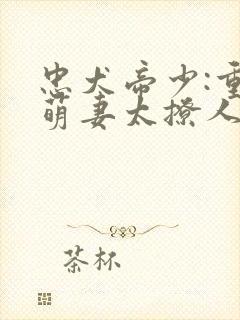 忠犬帝少:重
萌妻太撩人
茶杯